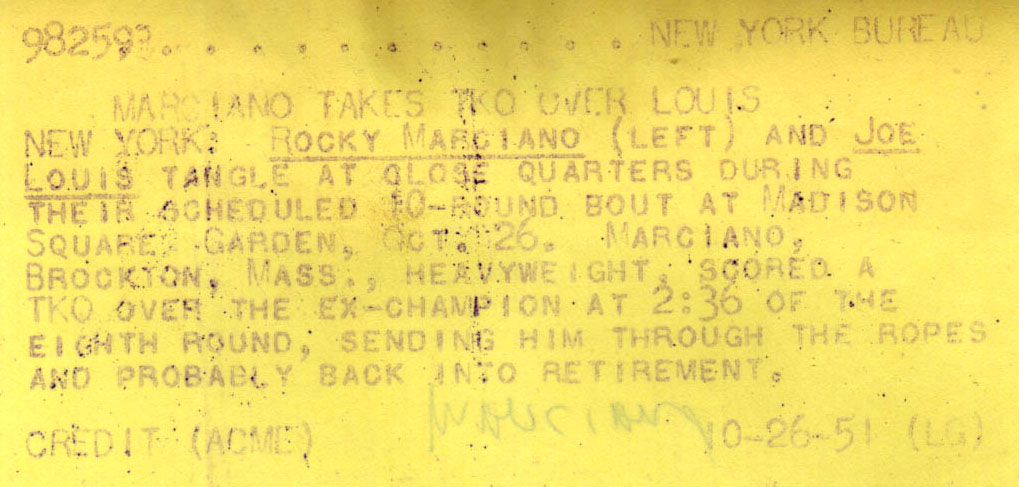 982593. . . . . . . . . . . . NEW YORK BUREAU
MARCIANO TAKES TKO OVER LOUIS
NEW YORK: ROCKY MARCIANO (LEFT) AND JOE
LOUIS TANGLE AT CLOSE QUARTERS DURING
THEIR SCHEDULED 10-ROUND BOUT AT MADISON
SQUARE GARDEN, OCT. 26. MARCIANO,
BROCKTON, MASS., HEAVYWEIGHT, SCORED A
TKO OVER THE EX-CHAMPION AT 2:36 OF THE
EIGHTH ROUND, SENDING HIM THROUGH THE ROPES
AND PROBABLY BACK INTO RETIREMENT.
Marciano
CREDIT (ACME) 10-26-51 (LG)